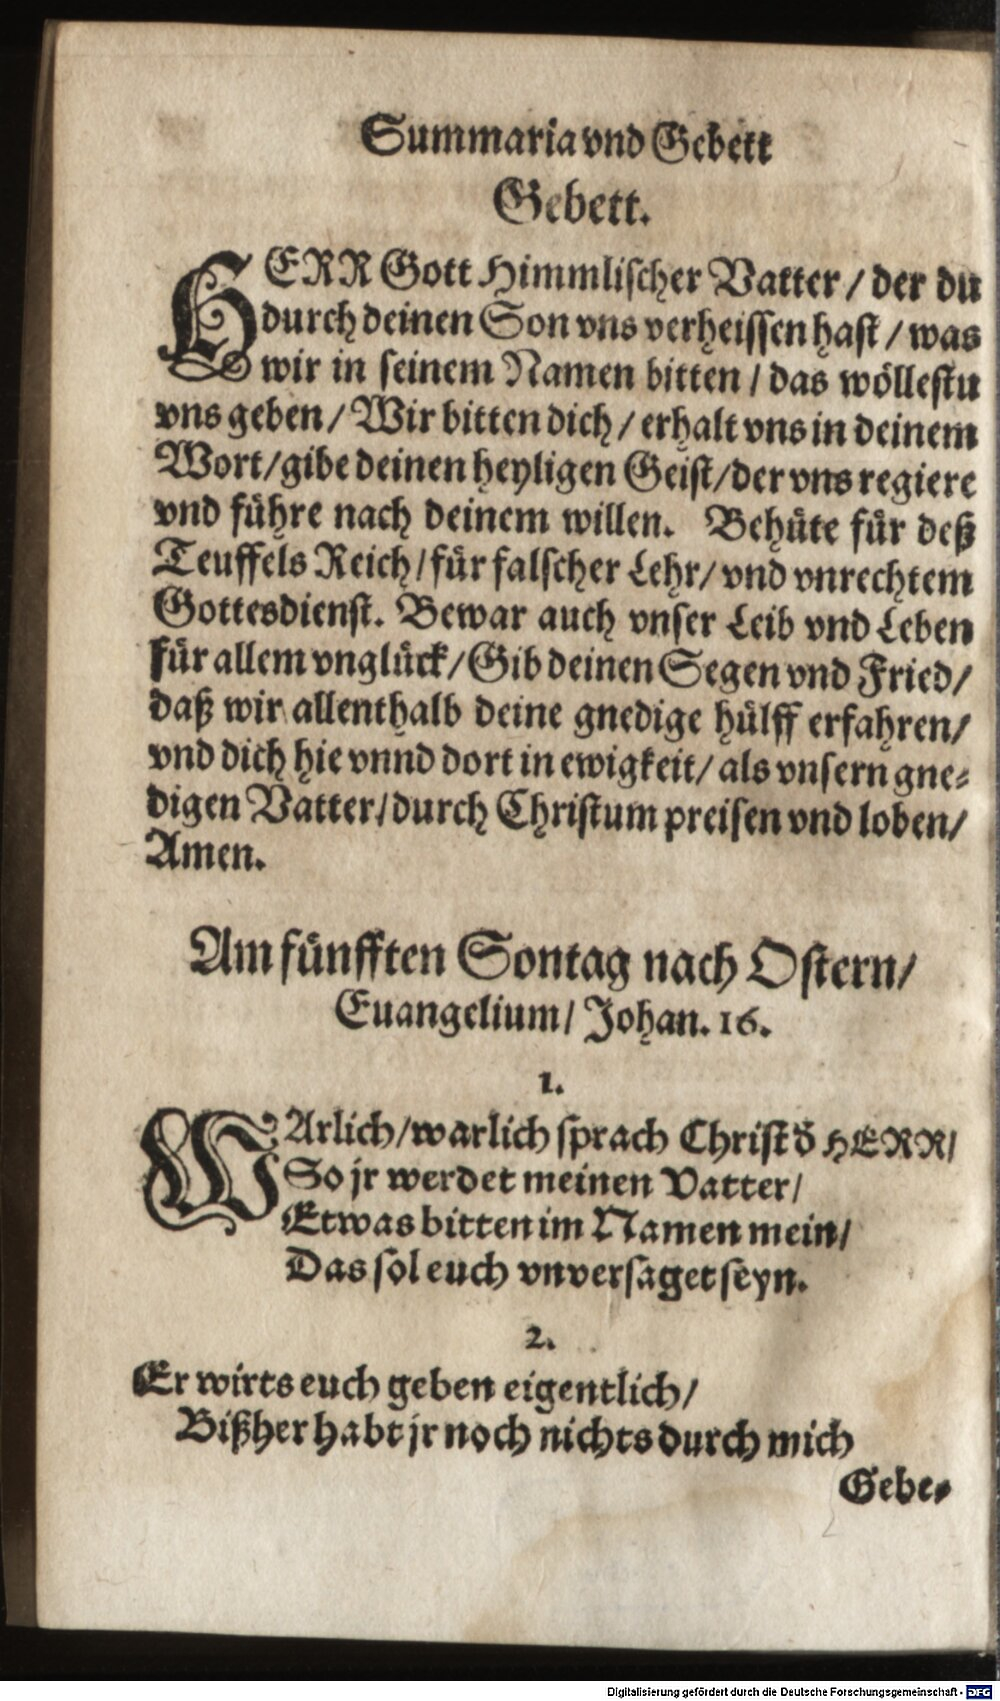 Summaria vnd Gebett
Gebett.
HERR Gott Himmlischer Vatter / der du
durch deinen Son vns verheissen hast / was
wir in seinem Namen bitten / das wöllestu
vns geben / Wir bitten dich / erhalt vns in deinem
Wort / gibe deinen heyligen Geist / der vns regiere
vnd führe nach deinem willen. Behüte für deß
Teuffels Reich / für falscher Lehr / vnd vnrechtem
Gottesdienst. Bewar auch vnser Leib vnd Leben
für allem vnglück / Gib deinen Segen vnd Fried /
daß wir allenthalb deine gnedige hülff erfahren /
vnd dich hie vnnd dort in ewigkeit / als vnsern gne-
digen Vatter / durch Christum preisen vnd loben /
Amen.
Am fünfften Sontag nach Ostern /
Euangelium / Johan. 16.
1.
WArlich / warlich sprach Christ d̕ HERR /
So jr werdet meinen Vatter /
Etwas bitten im Namen mein /
Das sol euch vnversaget seyn.
2.
Er wirts euch geben eigentlich /
Bißher habt jr noch nichts durch mich
Gebe-
Digitalisierung gefördert durch die Deutsche Forschungsgemeinschaft - DFG